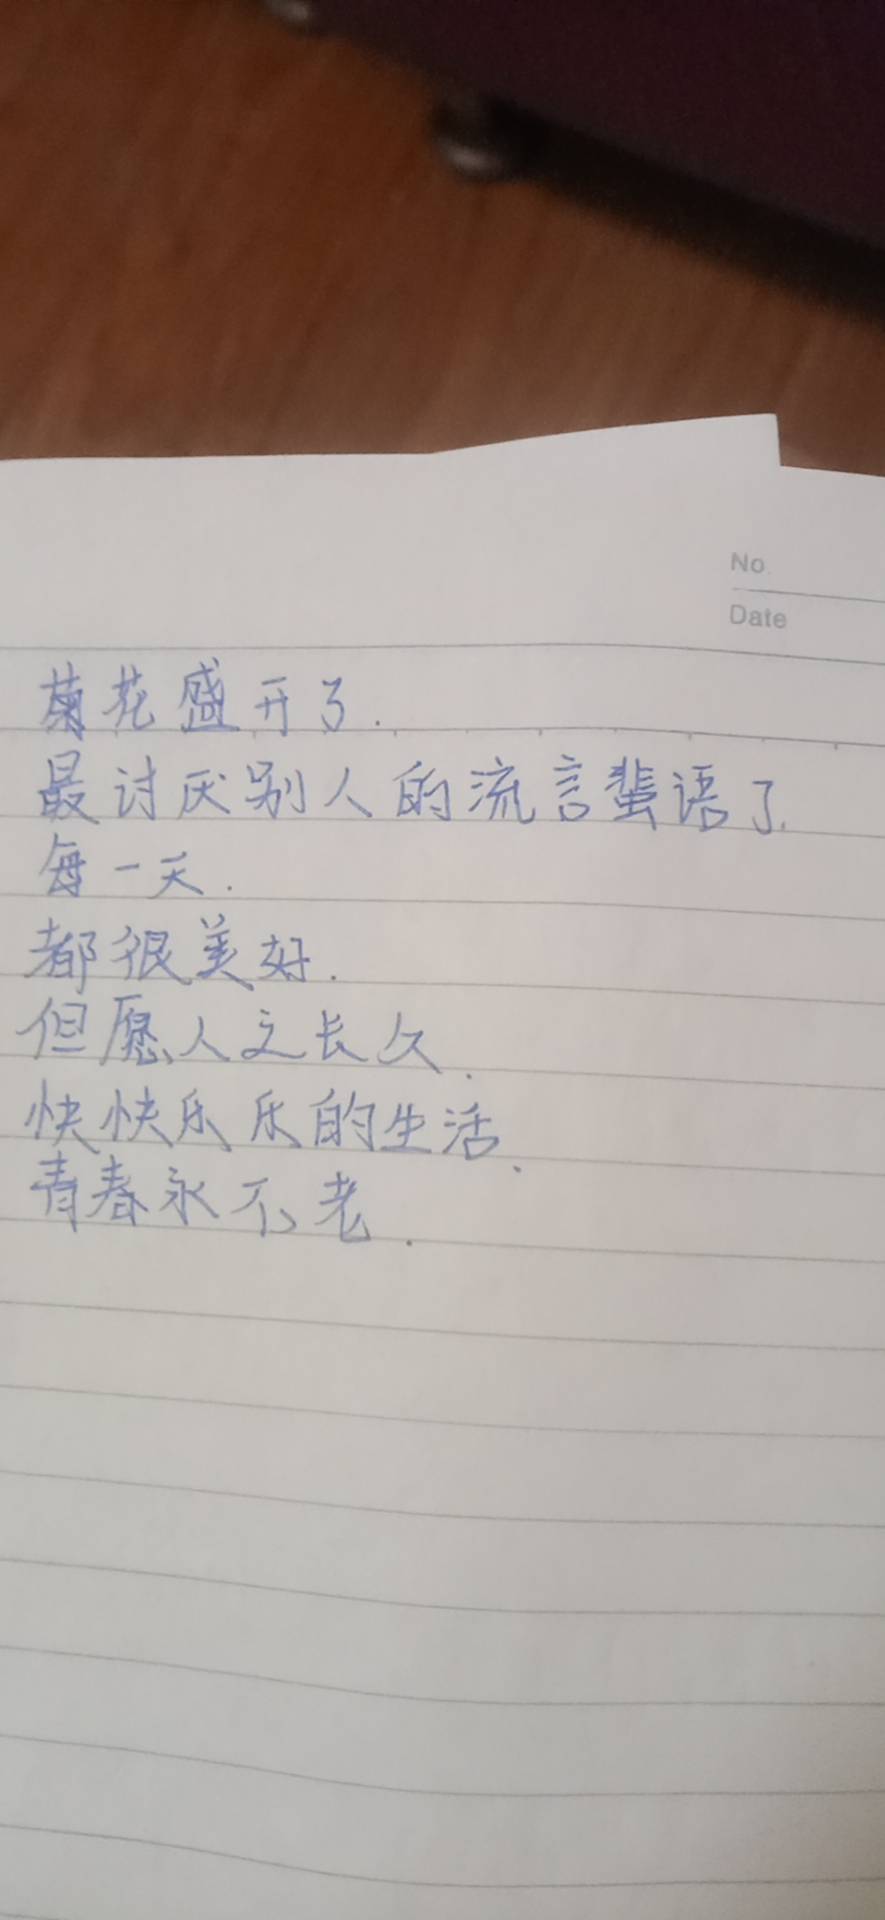 No.
Date
菊花盛开了.
最讨厌别人的流言蜚语了.
每一天.
都很美好.
但愿人之长久.
快快乐乐的生活.
青春永不老.